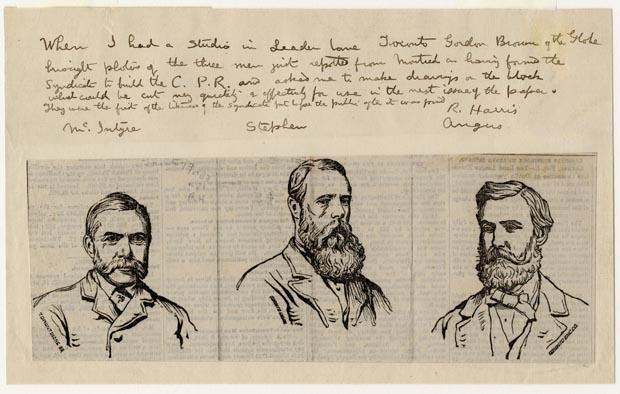 When I had a studio in Leader Lane Toronto Gordon Brown of the Globe
brought photos of the three men just reported from Montreal as having formed the
Syndicate to build the C. P. R. and asked me to make drawings on the block
what could be cut very quickly & effectively for use in the next issue of the paper.
They were the first of the likenesses of the Syndicate put before the public after it was formed
R. Harris
Mc. Intyre Stephen Angus